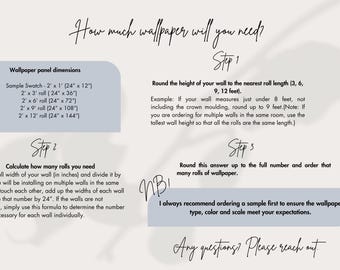 How much wallpaper will you need?
Wallpaper panel dimensions
Sample Swatch - 2' x 1' (24" x 12")
2' x 3' roll (24" x 36")
2' x 6' roll (24" x 72")
2' x 9' roll (24" x 108")
2' x 12' roll (24" x 144")
Step 1
Round the height of your wall to the nearest roll length (3, 6,
9, 12 feet).
Example: If your wall measures just under 8 feet, not
including the crown moulding, round up to 9 feet.(Note: If
you are ordering for multiple walls in the same room, use the
tallest wall height so that all the rolls are the same length.)
Step 2
Calculate how many rolls you need
ll width of your wall (in inches) and divide it by
will be installing on multiple walls in the same
ouch each other, add up the widths of each wall
that number by 24". If the walls are not
, simply use this formula to determine the number
cessary for each wall individually.
Step 3
Round this answer up to the full number and order that
many rolls of wallpaper.
NB!
I always recommend ordering a sample first to ensure the wallpape
type, color and scale meet your expectations.
Any questions? Please reach out